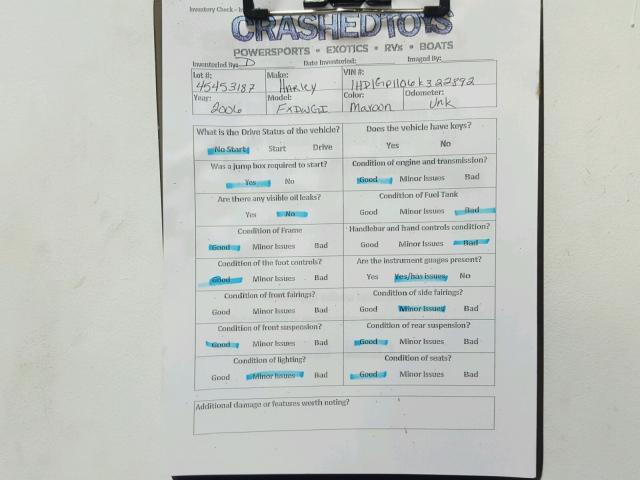 Inventory Check -
CRASHEDTOYS
POWERSPORTS • EXOTICS • RVs • BOATS
Inventoried By: D Date Inventoried: Imaged By:
Lot #: Make: VIN #:
45453187 Harley 1HD1GP1106K322892
Year: Model: Color: Odometer:
2006 FXDWGI Maroon Unk
What is the Drive Status of the vehicle? Does the vehicle have keys?
No Start Start Drive Yes No
Was a jump box required to start? Condition of engine and transmission?
Yes No Good Minor Issues Bad
Are there any visible oil leaks? Condition of Fuel Tank
Yes No Good Minor Issues Bad
Condition of Frame Handlebar and hand controls condition?
Good Minor Issues Bad Good Minor Issues Bad
Condition of the foot controls? Are the instrument guages present?
Good Minor Issues Bad Yes Yes/has issues No
Condition of front fairings? Condition of side fairings?
Good Minor Issues Bad Good Minor Issues Bad
Condition of front suspension? Condition of rear suspension?
Good Minor Issues Bad Good Minor Issues Bad
Condition of lighting? Condition of seats?
Good Minor Issues Bad Good Minor Issues Bad
Additional damage or features worth noting?